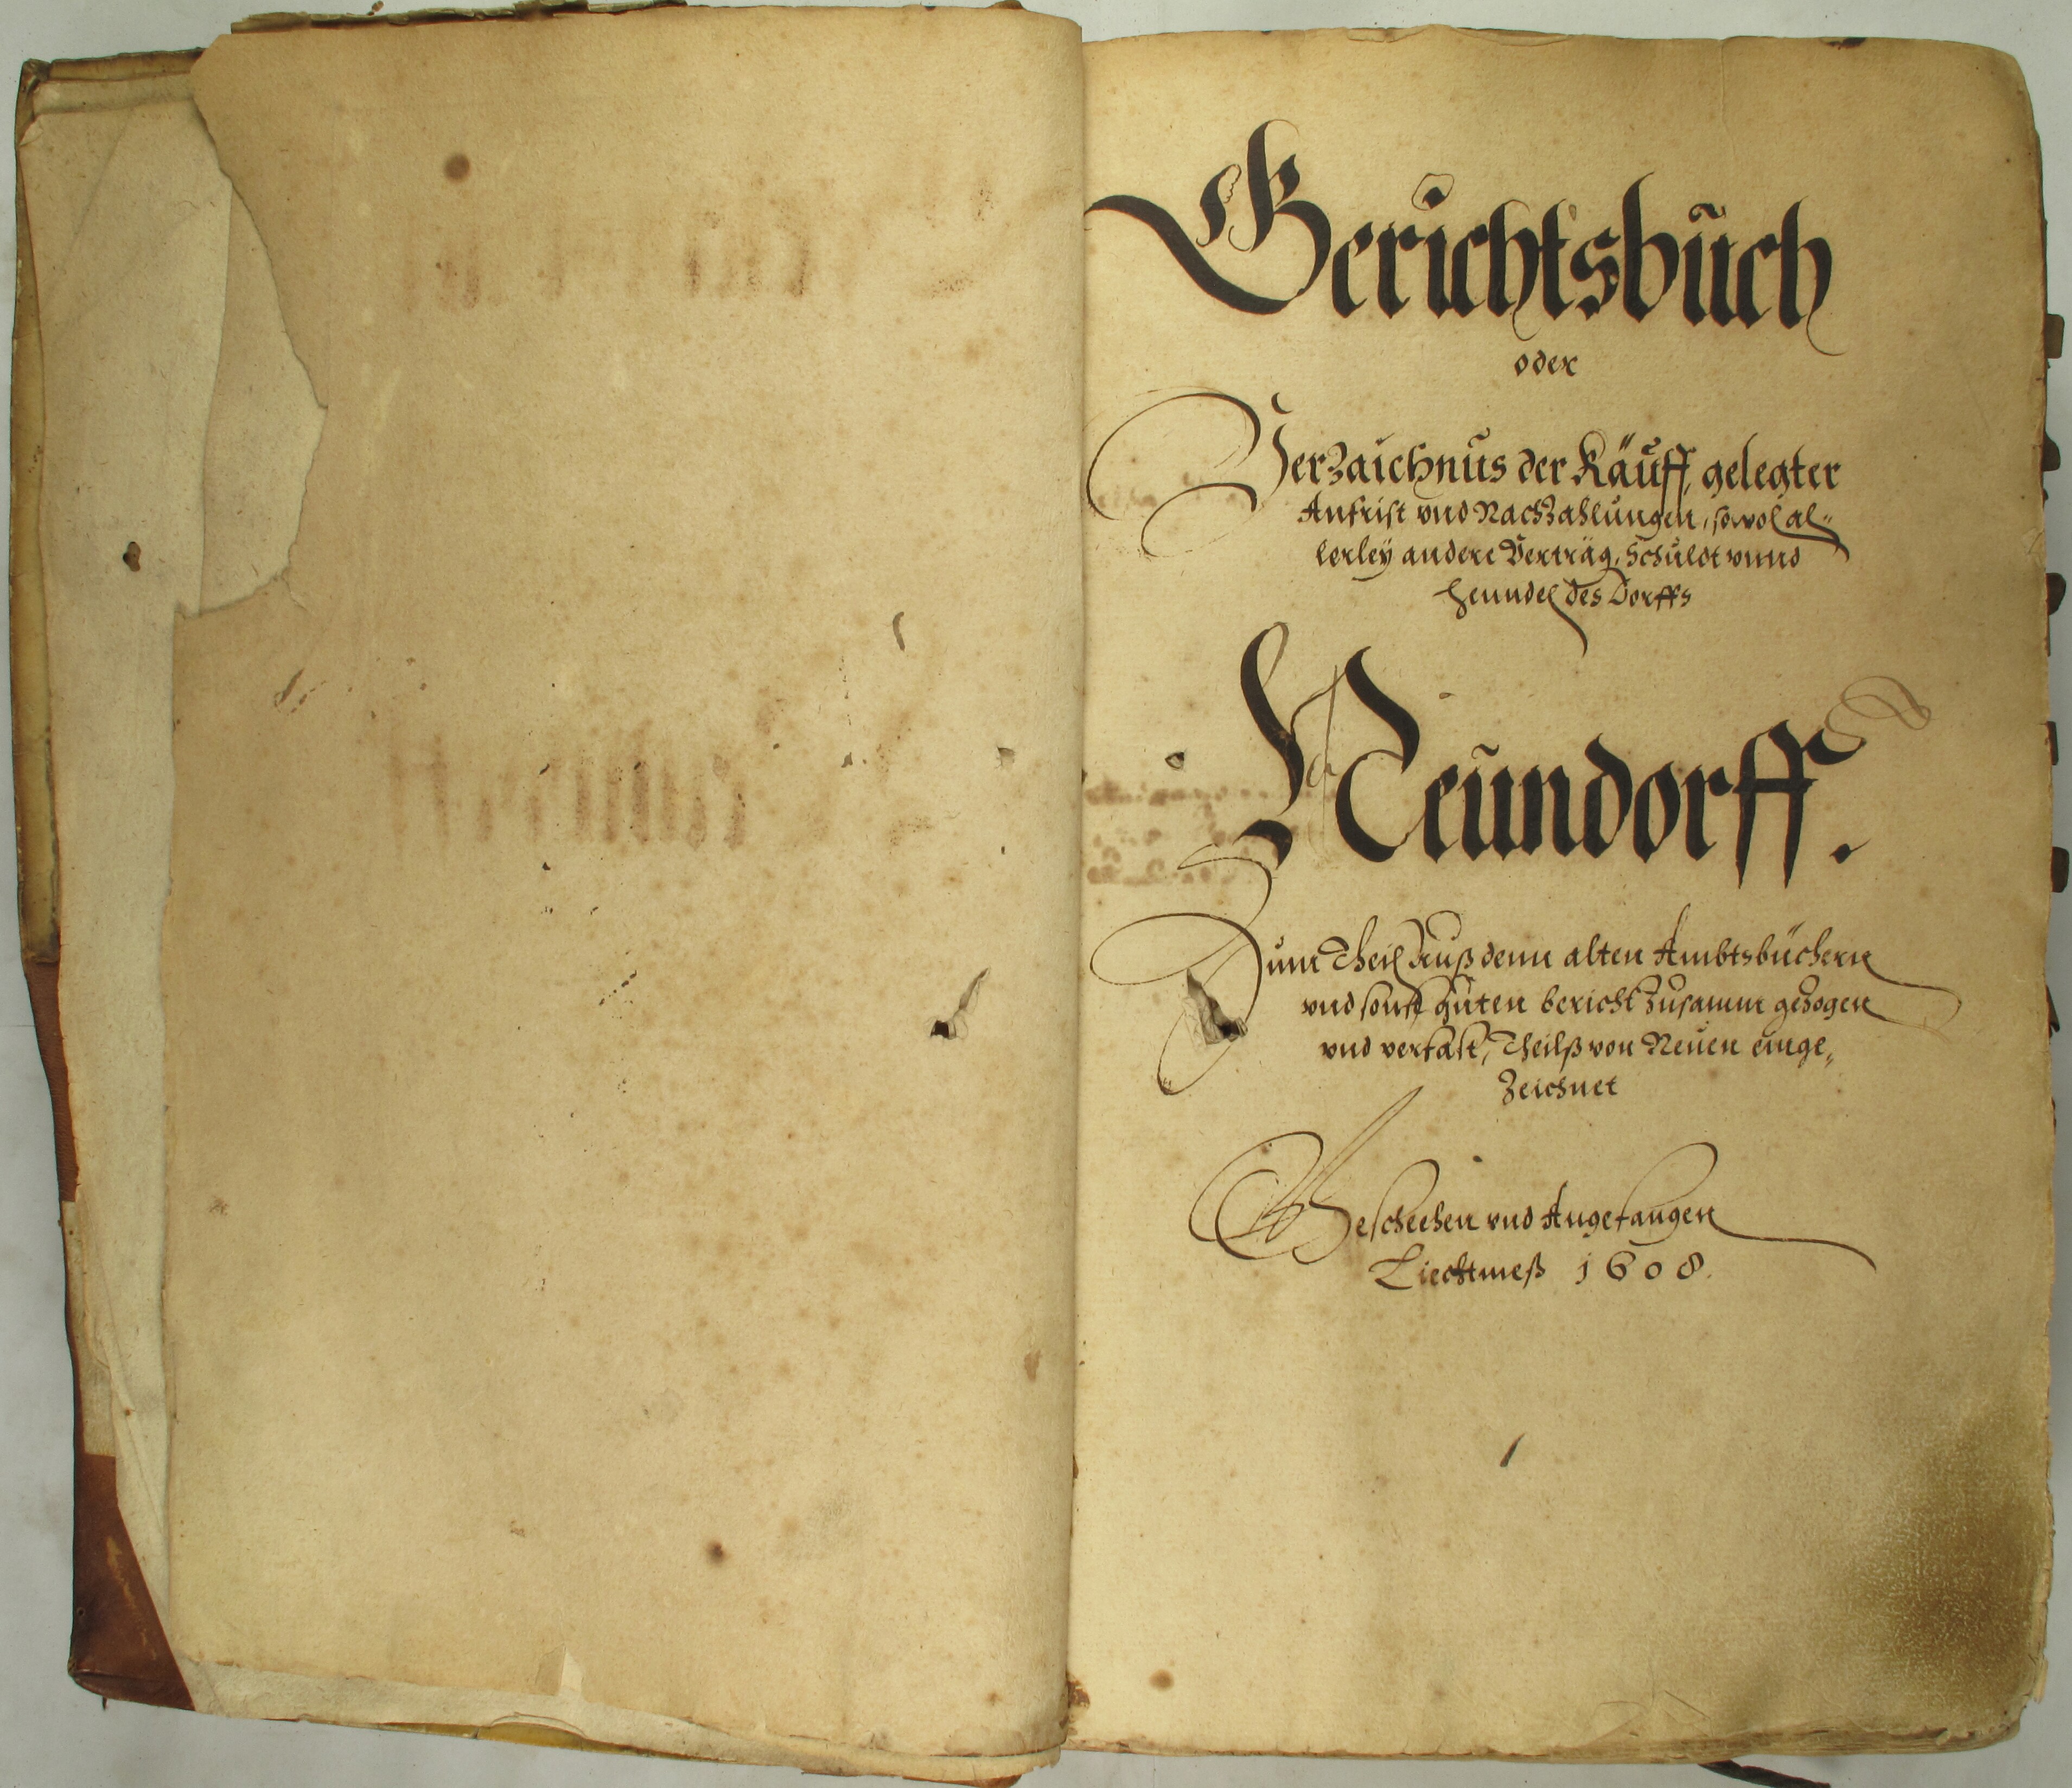 Gerichtsbuch
oder
Verzaichnus der Käuff, gelegter
Anfrist vnd Nachzahlungen, sowol al-
lerley andere Verträg, Schuldt vnnd
Henndel des Dorffs
Neundorff.
Zum Theil Auß denn alten Ambtsbüchern
vnd sonst guten bericht zusamm gezogen
vnd verfast, Theilß von Neuen einge,,
Zeichnet
Gescheehen vnd Angefangen
Liechtmeß 1608.